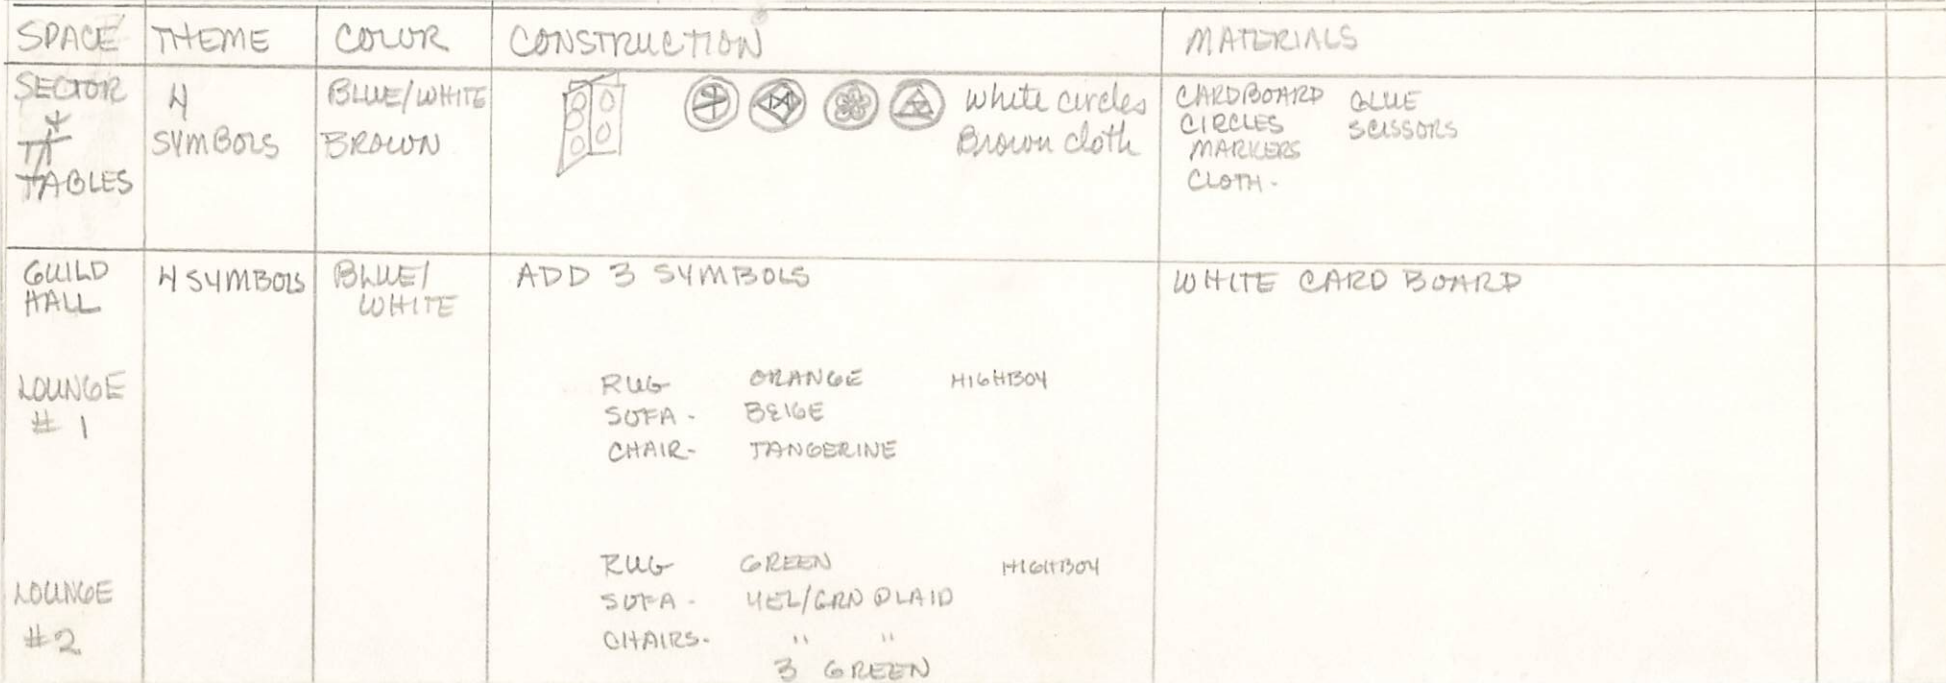 SPACE THEME COLOR CONSTRUCTION MATERIALS
SECTOR
TABLES
4
SYMBOLS
BLUE/WHITE
BROWN
White circles
Brown cloth
CARDBOARD GLUE
CIRCLES SCISSORS
MARKERS
CLOTH -
GUILD
HALL
4 SYMBOLS
BLUE/
WHITE
ADD 3 SYMBOLS
WHITE CARD BOARD
LOUNGE
# 1
RUG ORANGE HIGHBOY
SOFA - BEIGE
CHAIR- TANGERINE
LOUNGE
#2
RUG GREEN HIGHBOY
SOFA - YEL/GRN PLAID
CHAIRS- " "
3 GREEN